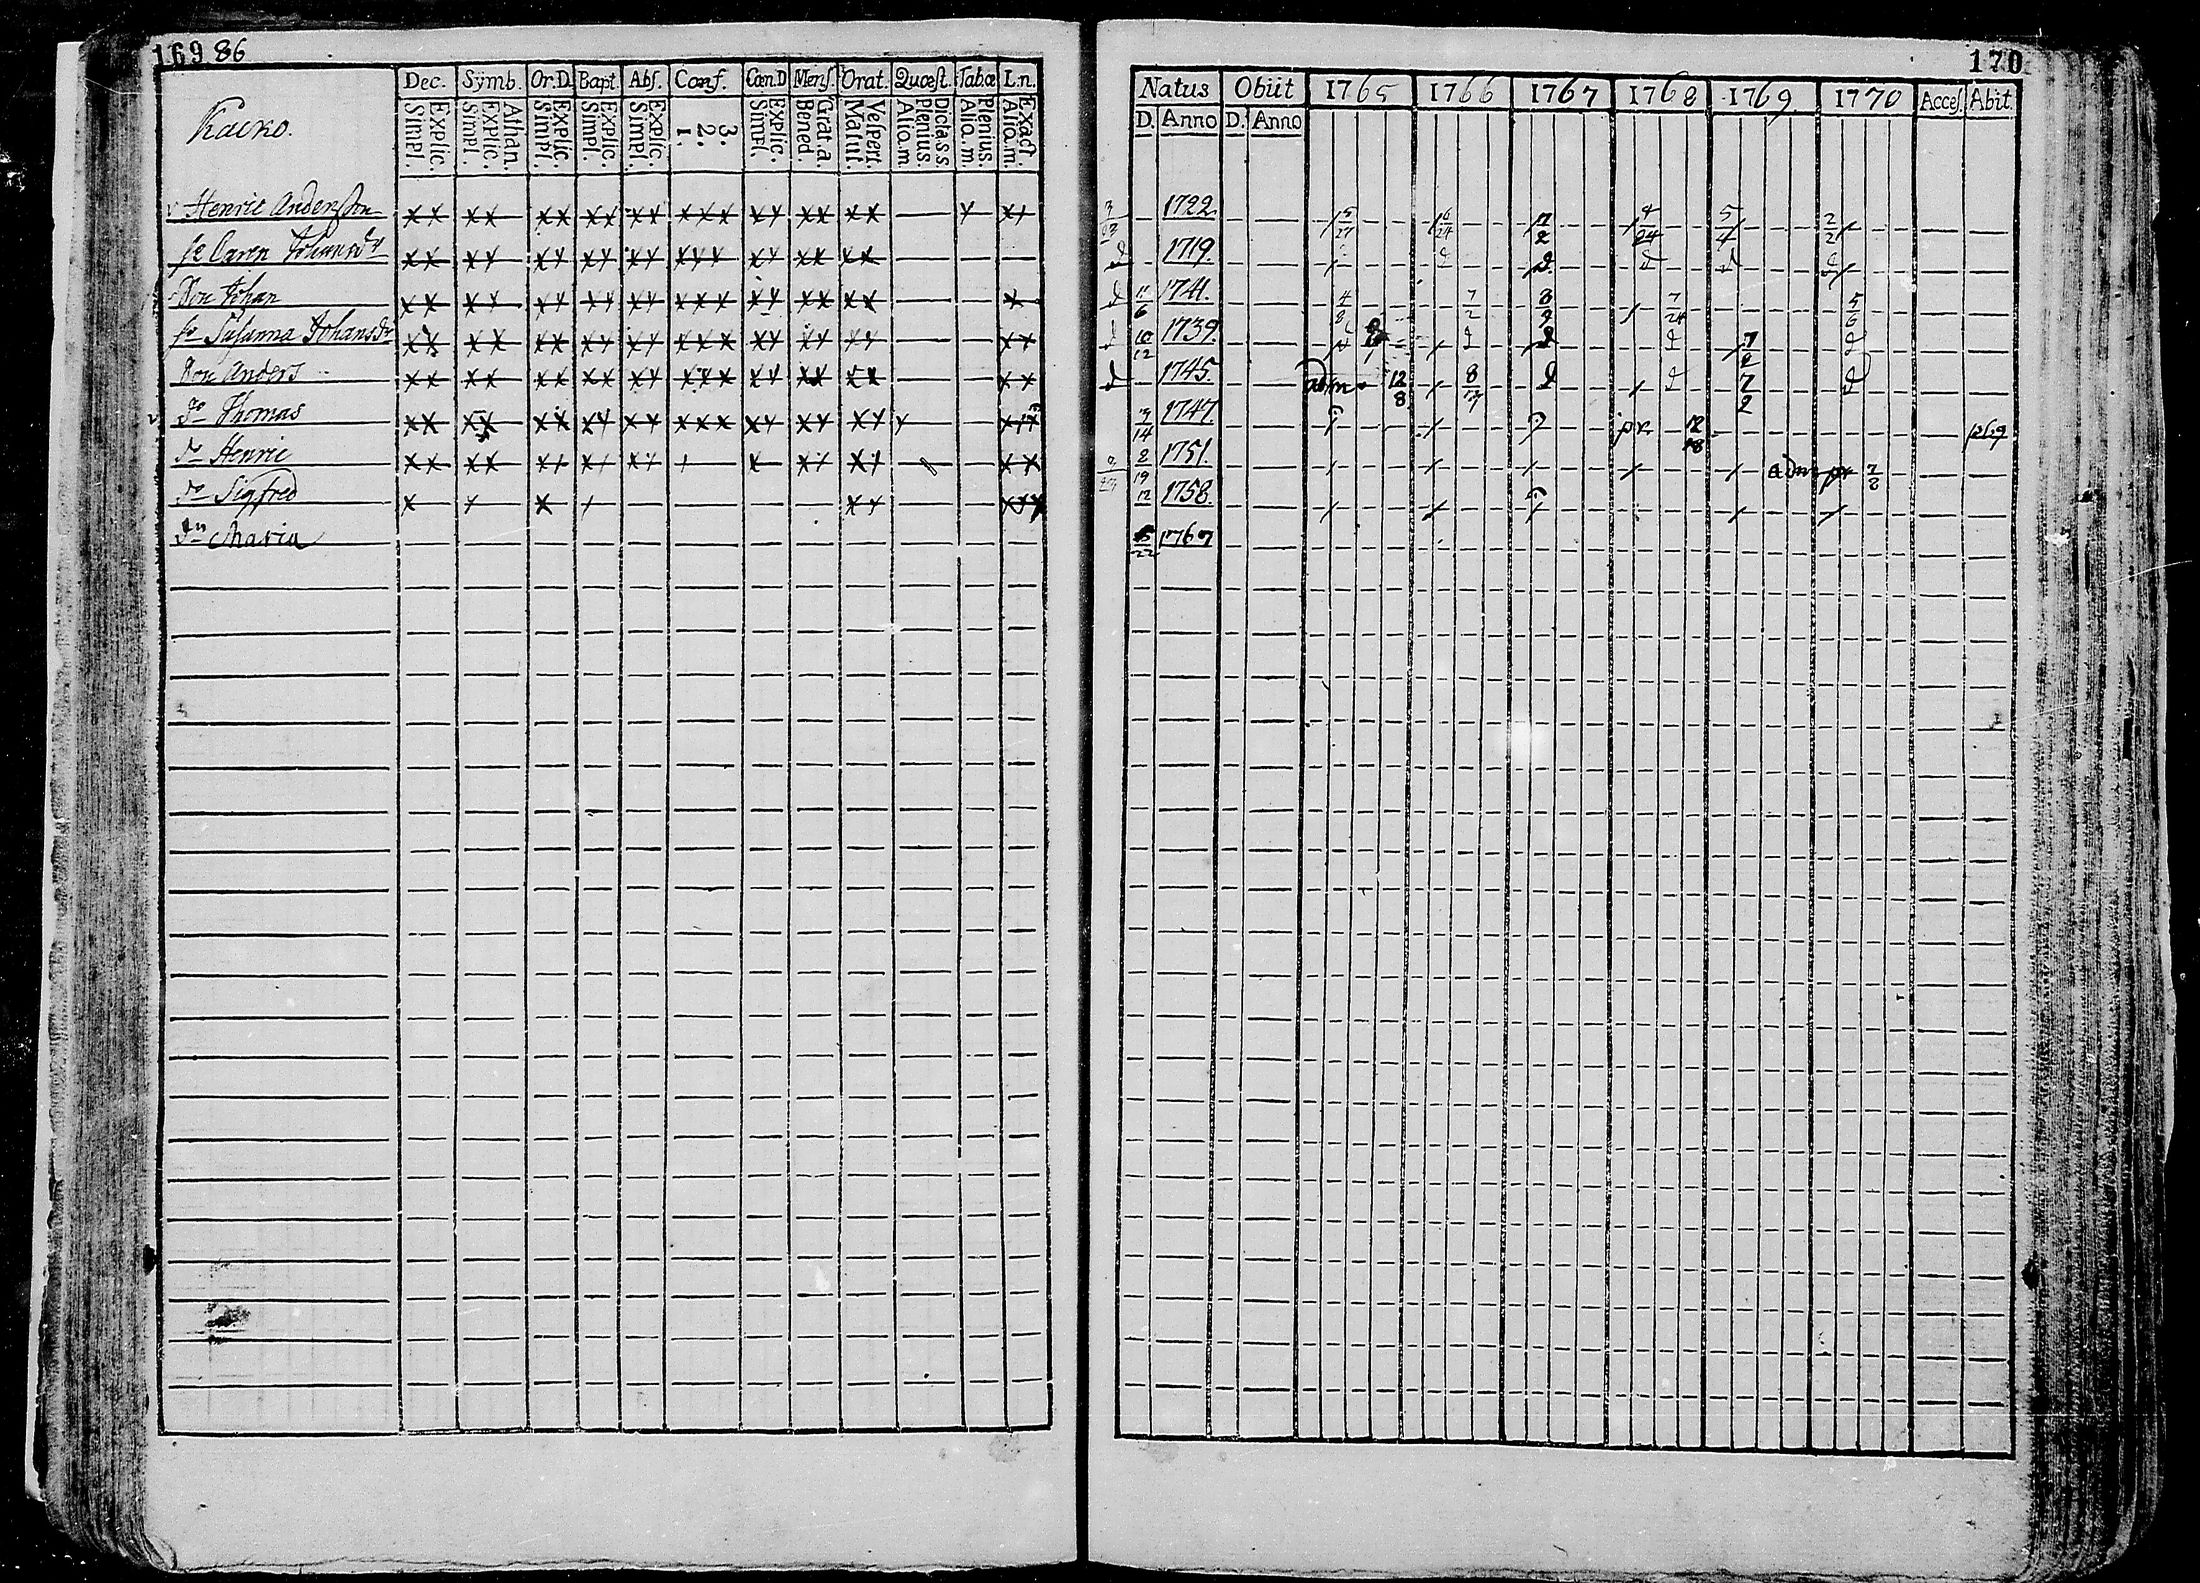 169 86
Dec. Symb. Or.D. Bapt. Abſ. Conf. Cœn.D Menſ. Orat. Quæſt. Tabœ L.n.
Explic. Simpl.
Athan. Explic. Simpl.
Explic. Simpl.
Explic. Simpl.
Explic. Simpl.
3. 2. 1.
Explic. Simpl.
Grat.a. Bened.
Veſpert. Matut.
Dicta.s.s. Plenius. Alio.m.
Plenius. Alio.m.
Exact. Alio.m.
Henric Andersson
Caren Johansdr
Son Johan
Susanna Johansdr
Son Anders
Do Thomas
Do Henric
Do Sigfred
Dr Maria
170
Natus Obiit 1765 1766 1767 1768 1769 1770 Acceſ. Abit.
D. Anno D. Anno
1722. 5/27 6/24 7/2 4/24 5/4 2/2
1719.
11/6 1741. 4/8 7/2 8/9 7/24 5/6
10/12 1739. 7/2
1745. adm 12/8 8/17 7/2
3/14 1747. pr 12/18
2/19 1751. adm pr 7/8
12 1758.
5/22 1767